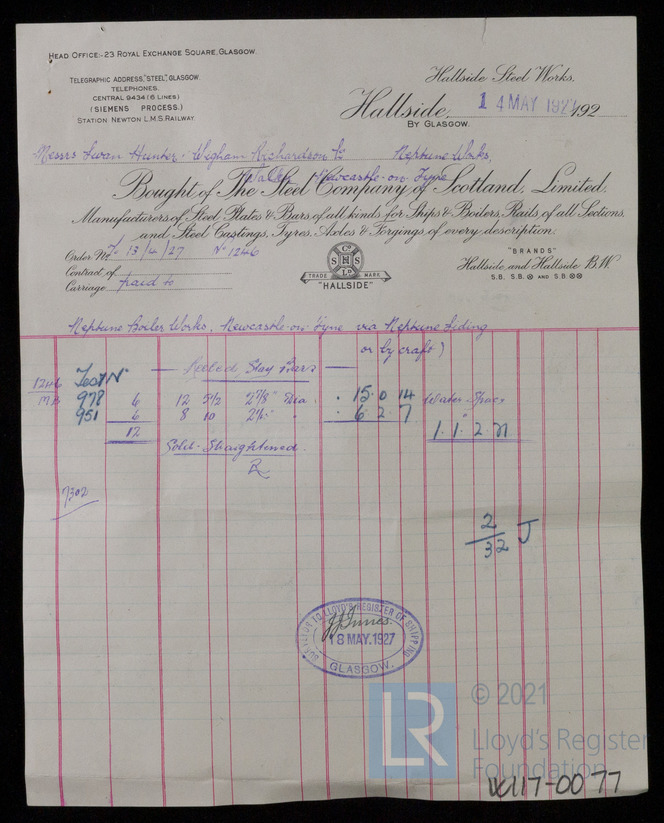 Head Office:- 23 Royal Exchange Square, Glasgow.
Telegraphic Address, "Steel", Glasgow.
Telephones.
Central 9434 (6 Lines)
(Siemens Process.)
Station Newton L.M.S. Railway.
Hallside Steel Works.
Hallside, 14 MAY 1927 192
By Glasgow.
Messrs Swan Hunter & Wigham Richardson Ld Neptune Works,
Walker Newcastle-on-Tyne
Bought of The Steel Company of Scotland, Limited.
Manufacturers of Steel Plates & Bars of all kinds for Ships & Boilers, Rails of all Sections,
and Steel Castings, Tyres, Axles & Forgings of every description.
Order No. 13/4/27 No 1246
Contract of
Carriage paid to
Co SHS LD
TRADE MARK
"HALLSIDE"
"BRANDS"
Hallside and Hallside B.W.
S.B. S.B. and S.B.
Neptune Boiler Works, Newcastle-on-Tyne via Neptune Siding
or by craft)
Rolled Stay Bars
1246 Test No
978 6 12 5½ 2⅞" Dia. 15 0 14 Water Space
951 6 8 10 6 2 7 "
12 1 . 1 . 2 . 21
Cold-Straightened.
7302
2/32 J
SURVEYOR TO LLOYD'S REGISTER OF SHIPPING
J.J. Innes.
18 MAY. 1927
GLASGOW.
LR
© 2021
Lloyd's Register
Foundation
77